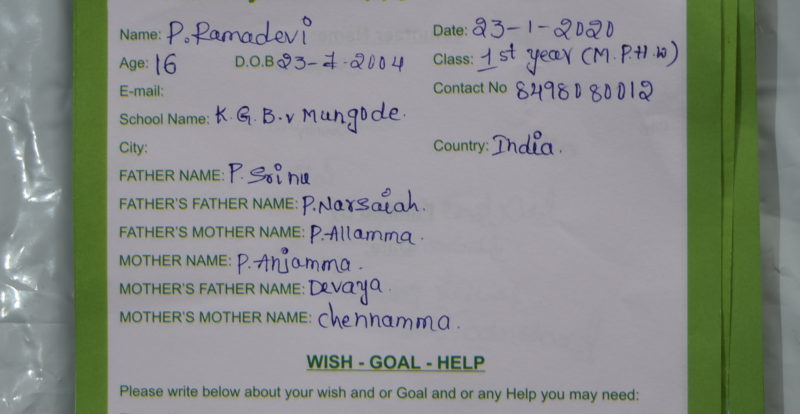 Name: P. Ramadevi Date: 23-1-2020
Age: 16 D.O.B 23-7-2004 Class: 1st year (M.P.H.W)
E-mail: Contact No 8498080012
School Name: K.G.B.V Mungode.
City: Country: India.
FATHER NAME: P. Srinu
FATHER'S FATHER NAME: P. Narsaiah.
FATHER'S MOTHER NAME: P. Allamma.
MOTHER NAME: P. Anjamma.
MOTHER'S FATHER NAME: Devaya.
MOTHER'S MOTHER NAME: chennamma.
WISH - GOAL - HELP
Please write below about your wish and or Goal and or any Help you may need: